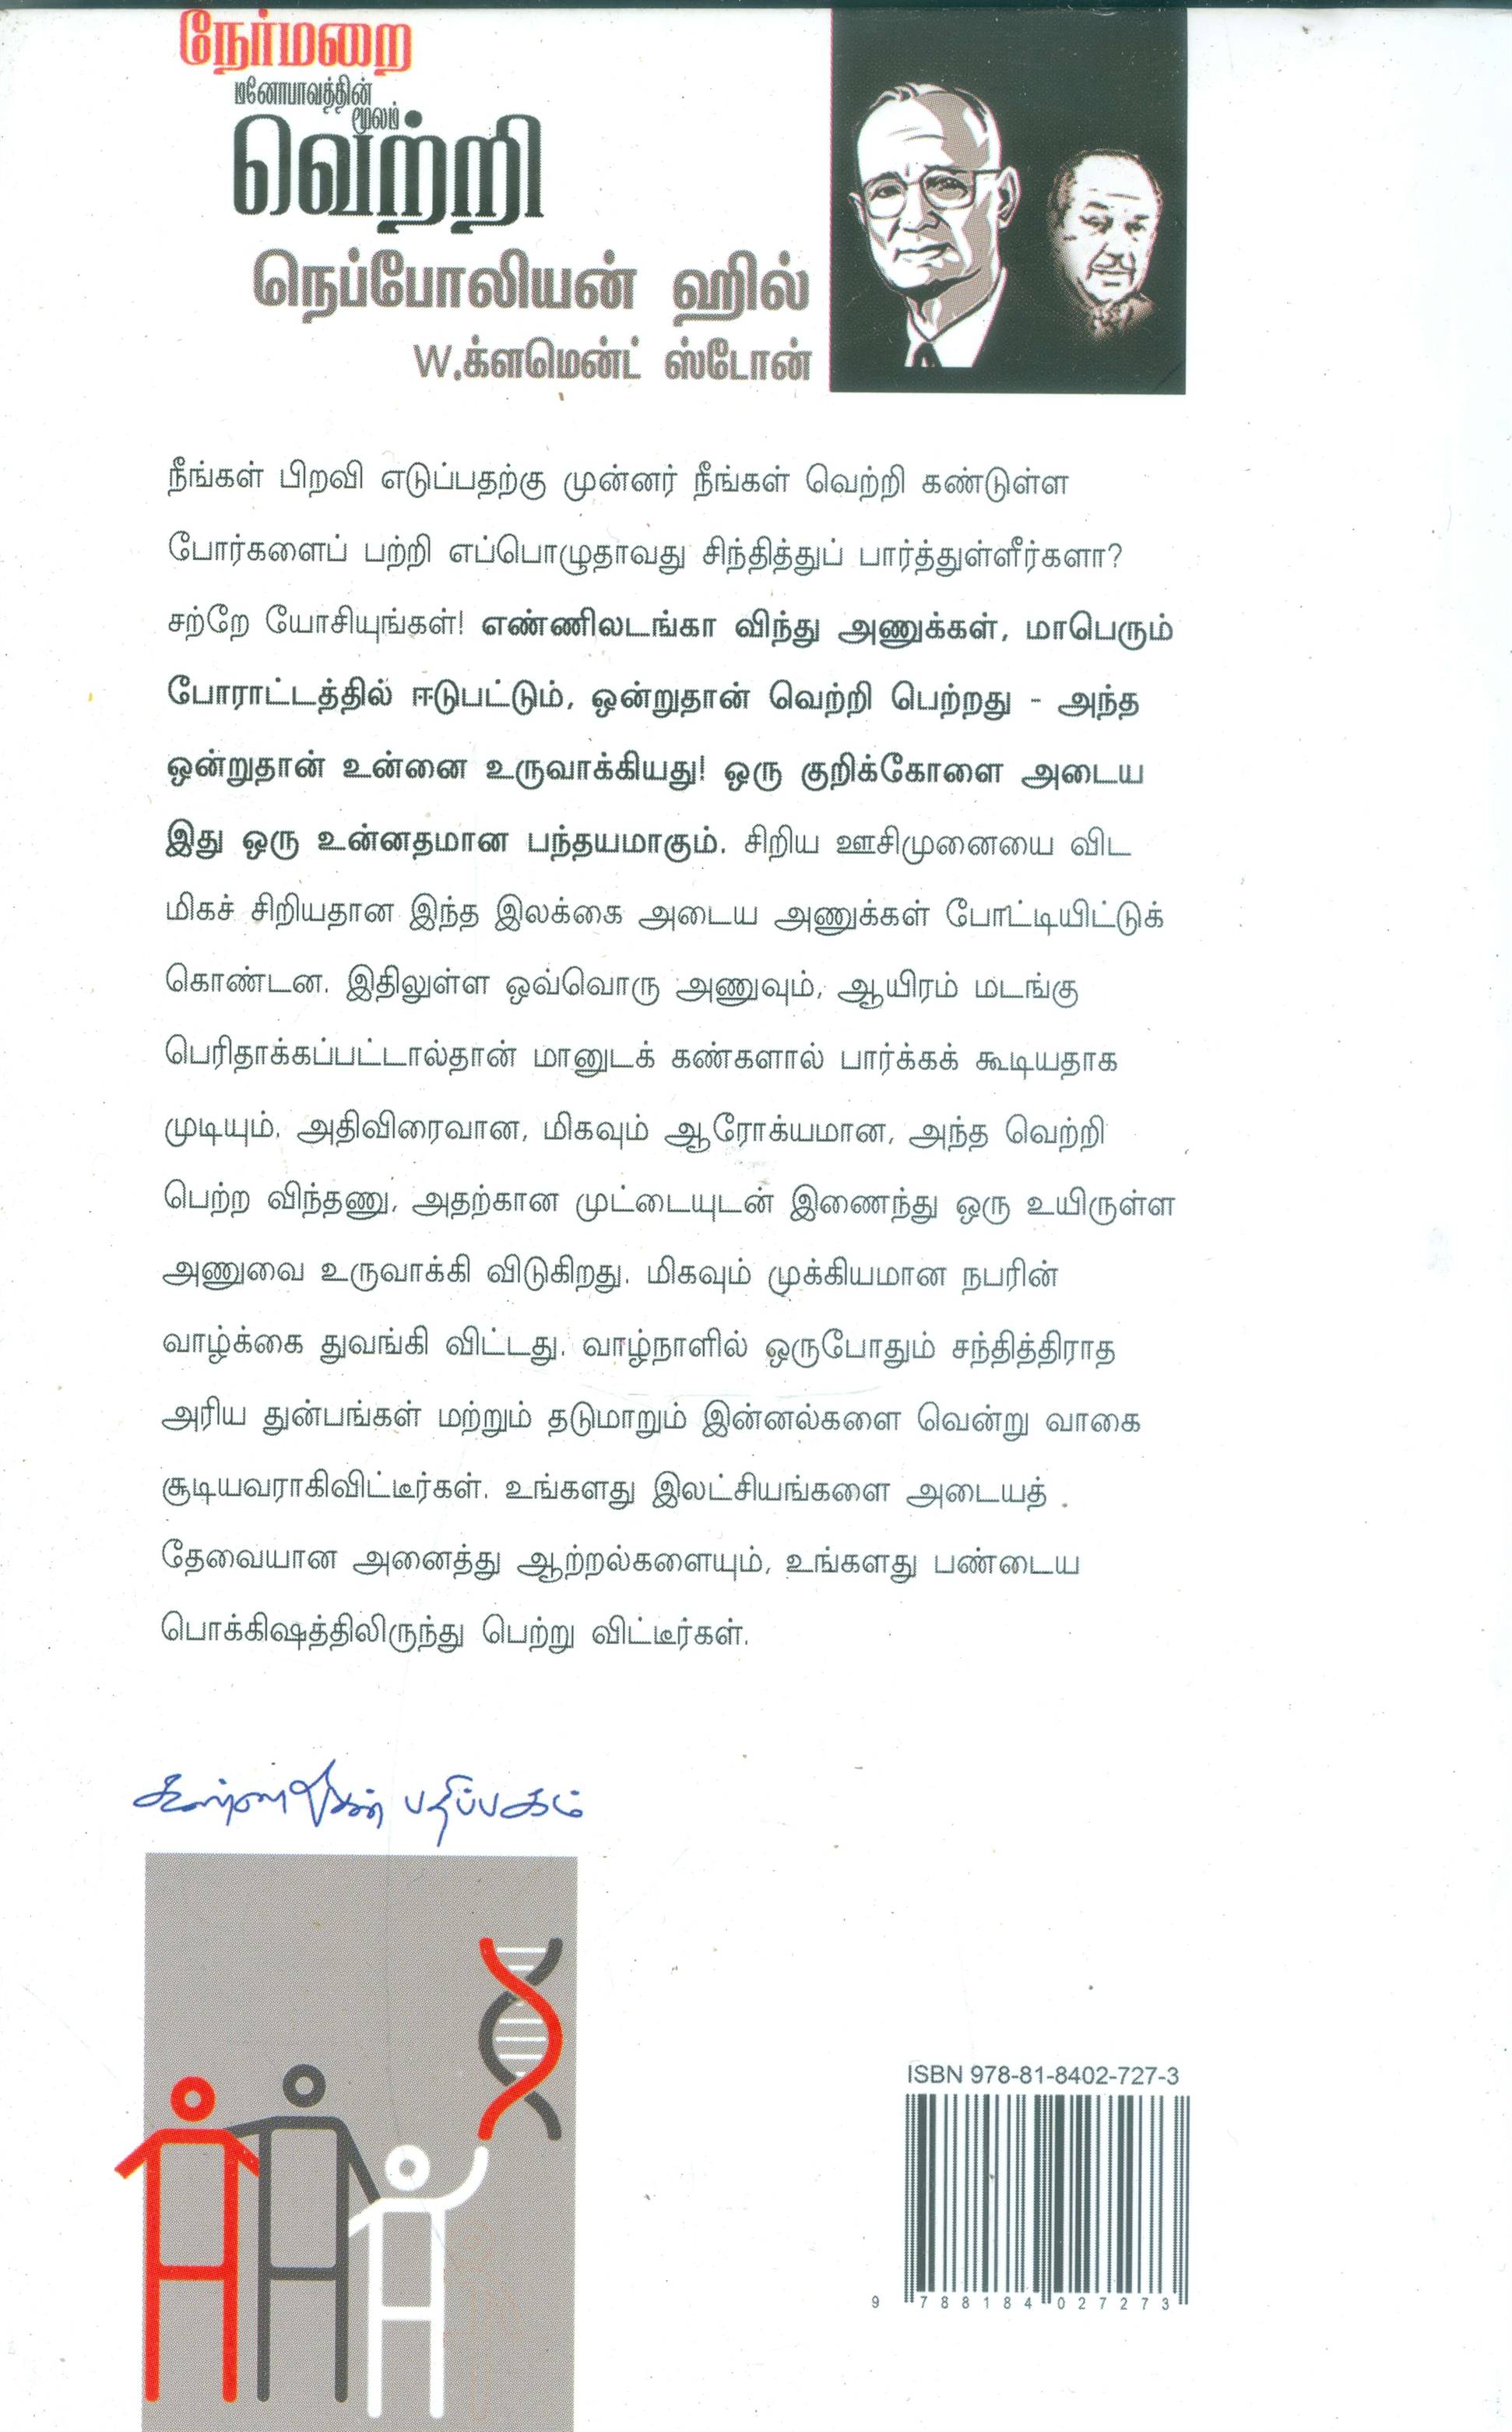 நேர்மறை
மனோபாவத்தின்
மூலம்
வெற்றி
நெப்போலியன் ஹில்
W.க்ளமென்ட் ஸ்டோன்
நீங்கள் பிறவி எடுப்பதற்கு முன்னர் நீங்கள் வெற்றி கண்டுள்ள
போர்களைப் பற்றி எப்பொழுதாவது சிந்தித்துப் பார்த்துள்ளீர்களா?
சற்றே யோசியுங்கள்! எண்ணிலடங்கா விந்து அணுக்கள், மாபெரும்
போராட்டத்தில் ஈடுபட்டும், ஒன்றுதான் வெற்றி பெற்றது - அந்த
ஒன்றுதான் உன்னை உருவாக்கியது! ஒரு குறிக்கோளை அடைய
இது ஒரு உன்னதமான பந்தயமாகும். சிறிய ஊசிமுனையை விட
மிகச் சிறியதான இந்த இலக்கை அடைய அணுக்கள் போட்டியிட்டுக்
கொண்டன. இதிலுள்ள ஒவ்வொரு அணுவும், ஆயிரம் மடங்கு
பெரிதாக்கப்பட்டால்தான் மானுடக் கண்களால் பார்க்கக் கூடியதாக
முடியும். அதிவிரைவான, மிகவும் ஆரோக்யமான, அந்த வெற்றி
பெற்ற விந்தணு, அதற்கான முட்டையுடன் இணைந்து ஒரு உயிருள்ள
அணுவை உருவாக்கி விடுகிறது. மிகவும் முக்கியமான நபரின்
வாழ்க்கை துவங்கி விட்டது. வாழ்நாளில் ஒருபோதும் சந்தித்திராத
அரிய துன்பங்கள் மற்றும் தடுமாறும் இன்னல்களை வென்று வாகை
சூடியவராகிவிட்டீர்கள். உங்களது இலட்சியங்களை அடையத்
தேவையான அனைத்து ஆற்றல்களையும், உங்களது பண்டைய
பொக்கிஷத்திலிருந்து பெற்று விட்டீர்கள்.
கண்ணதாசன் பதிப்பகம்
ISBN 978-81-8402-727-3
9 788184 027273